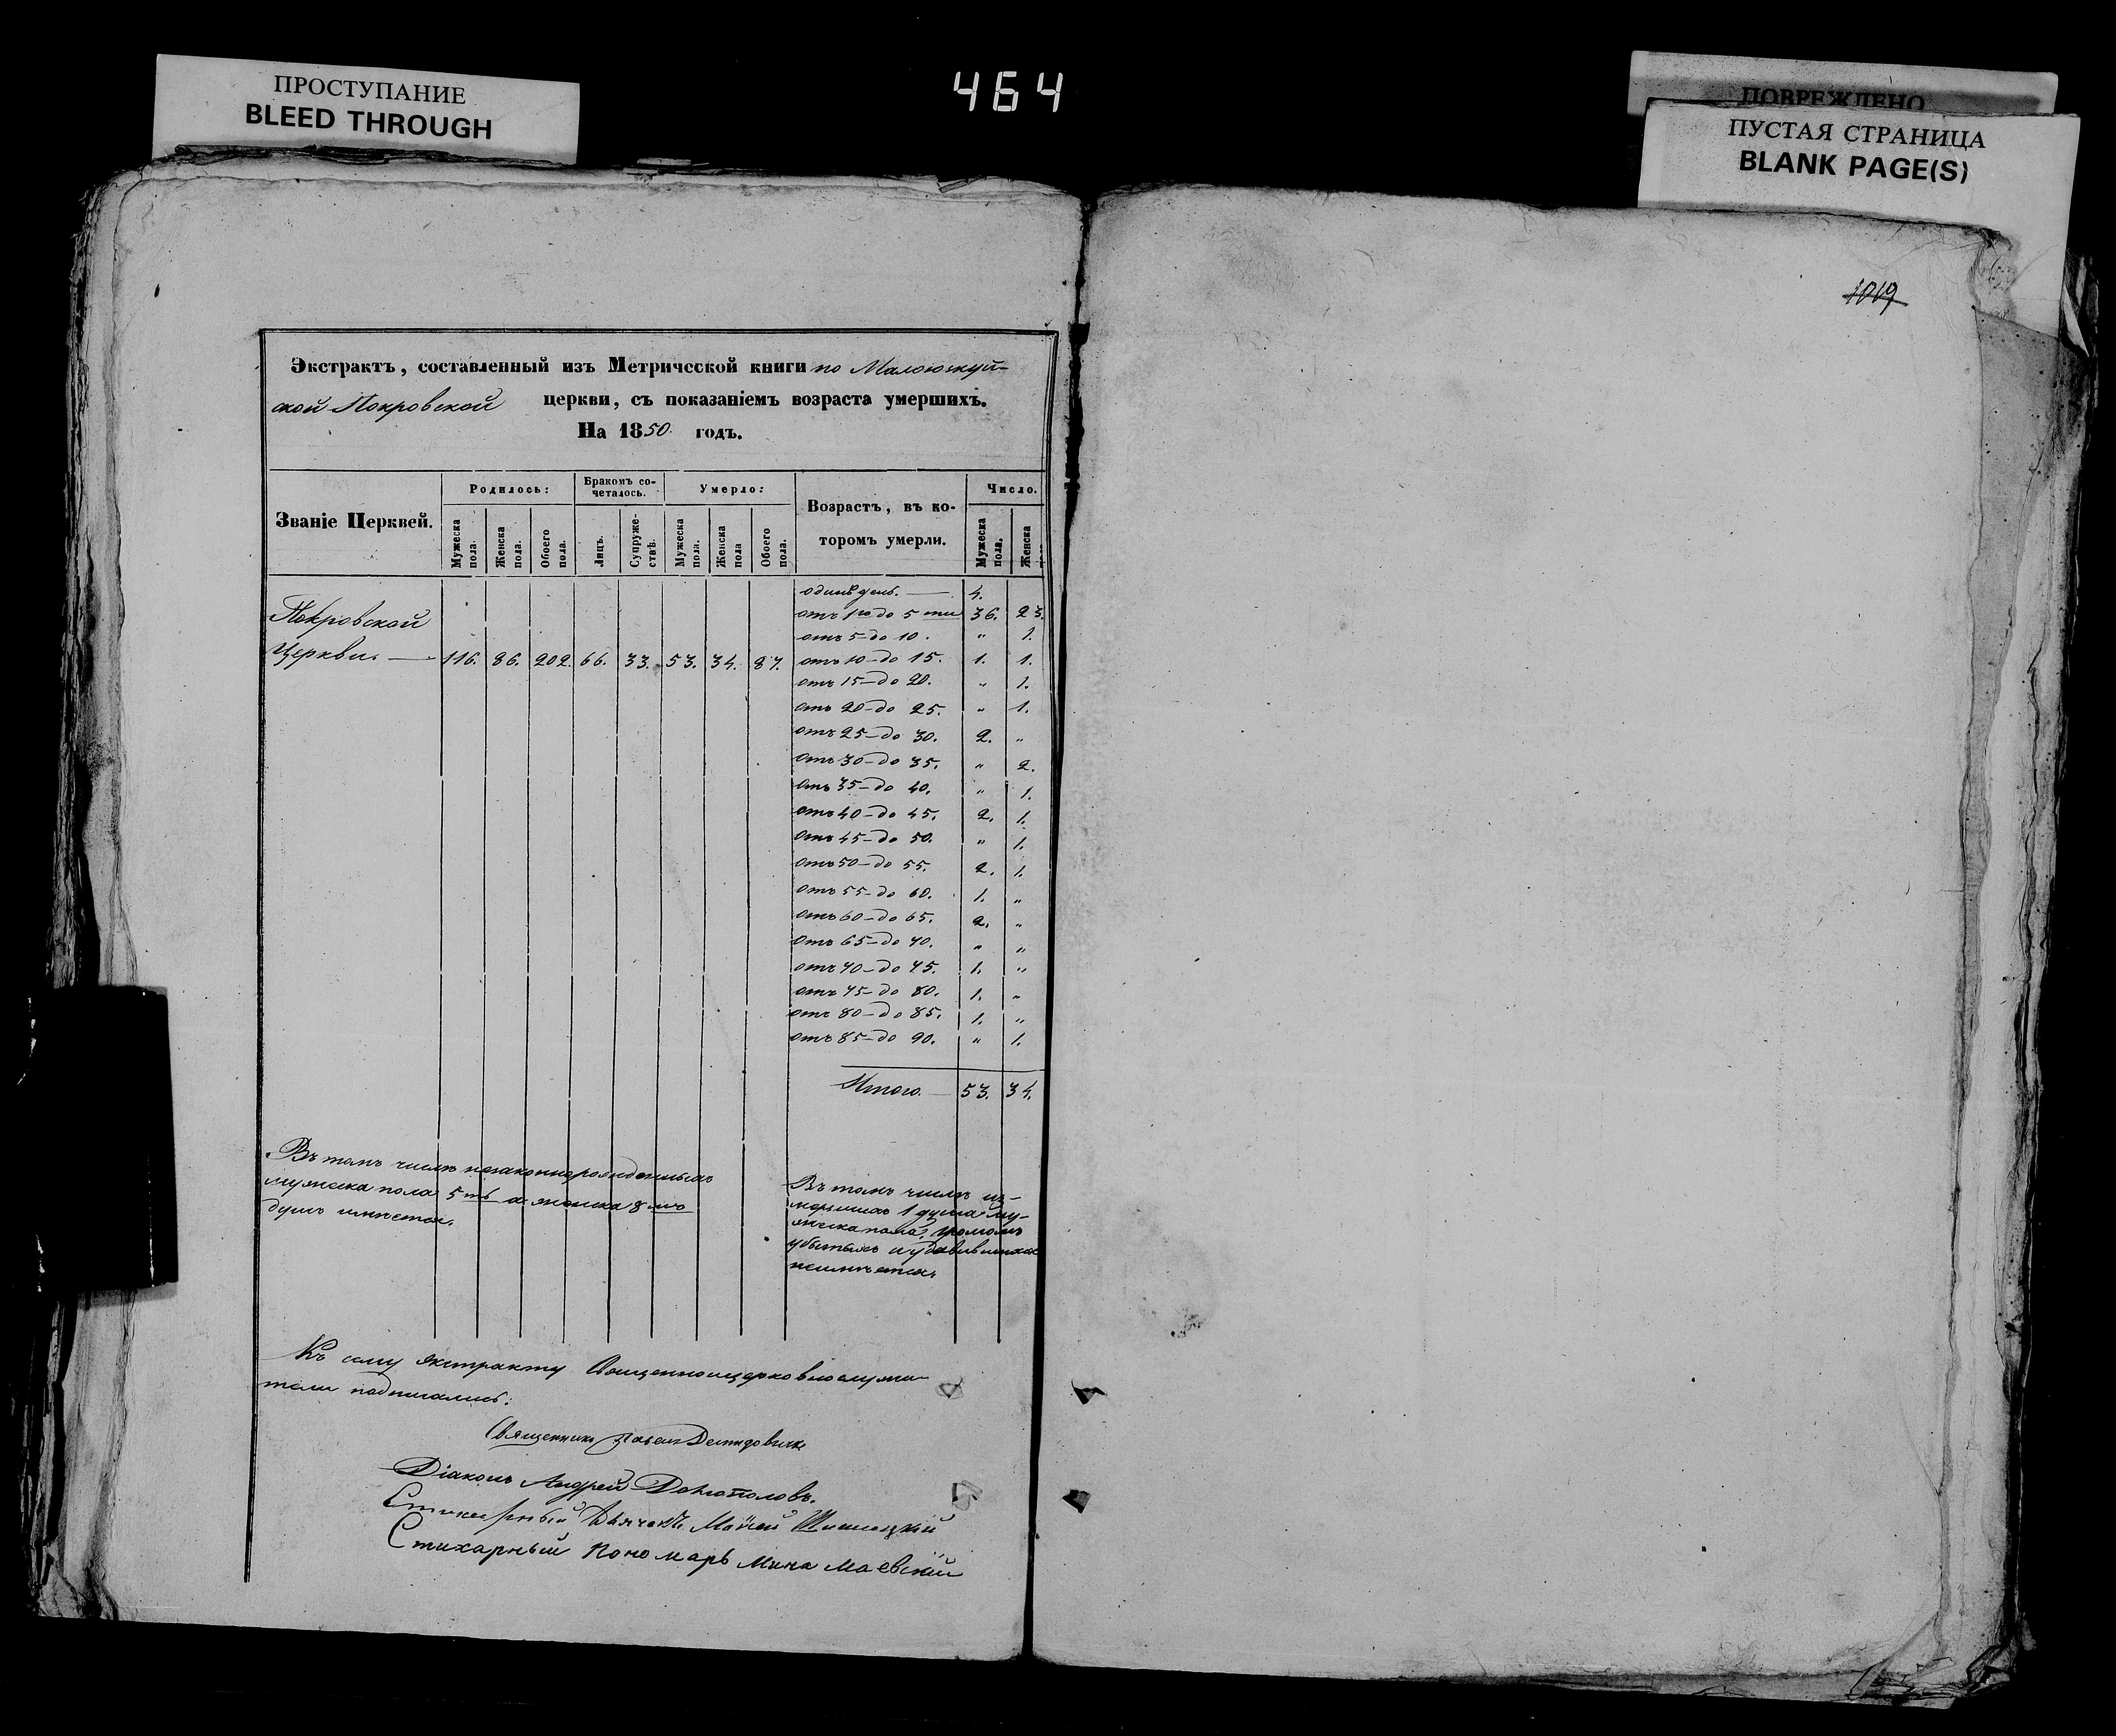 ПРОСТУПАНИЕ
BLEED THROUGH
464
ПОВРЕЖДЕНО
ПУСТАЯ СТРАНИЦА
BLANK PAGE(S)
1019
Экстрактъ, составленный изъ Метрической книги по
ской Покровской церкви, съ показаніемъ возраста умершихъ.
На 1850 годъ.
Званіе Церквей.
Родилось:
Мужеска пола.
Женска пола.
Обоего пола.
Бракомъ со-
четалось.
Лицъ.
Супруже-
ствъ.
Умерло:
Мужеска пола.
Женска пола
Обоего пола.
Возрастъ, въ ко-
торомъ умерли.
Число.
Мужеска пола.
Женска
Покровской
Церкви. — 116. 86. 202. 66. 33. 53. 34. 87.
одинъ день. — 4.
отъ 1го до 5ти 36. 23.
отъ 5 — до 10. " 1.
отъ 10 — до 15. 1. 1.
отъ 15 — до 20. " 1.
отъ 20 — до 25. " 1.
отъ 25 — до 30. 2. "
отъ 30 — до 35. " 2.
отъ 35 — до 40. " 1.
отъ 40 — до 45. 2. 1.
отъ 45 — до 50. " 1.
отъ 50 — до 55. 2. 1.
отъ 55 — до 60. 1. "
отъ 60 — до 65. 2. "
отъ 65 — до 70. " "
отъ 70 — до 75. 1. "
отъ 75 — до 80. 1. "
отъ 80 — до 85. 1. "
отъ 85 — до 90. " 1.
Итого. 53. 34.
Въ томъ числѣ незаконнорожденныхъ
мужеска пола 5ть а женска 8мь
душъ имѣется.
Въ томъ числѣ
1 душа му-
жеска пола, громомъ
убитыхъ и удавившихся
неимѣется.
Къ сему экстракту Священноцерковнослужи-
тели подписались:
Священникъ Павелъ Демидовичъ
Діаконъ Андрей
Стихарный Дьячекъ
Стихарный Пономарь Мина Маевскій